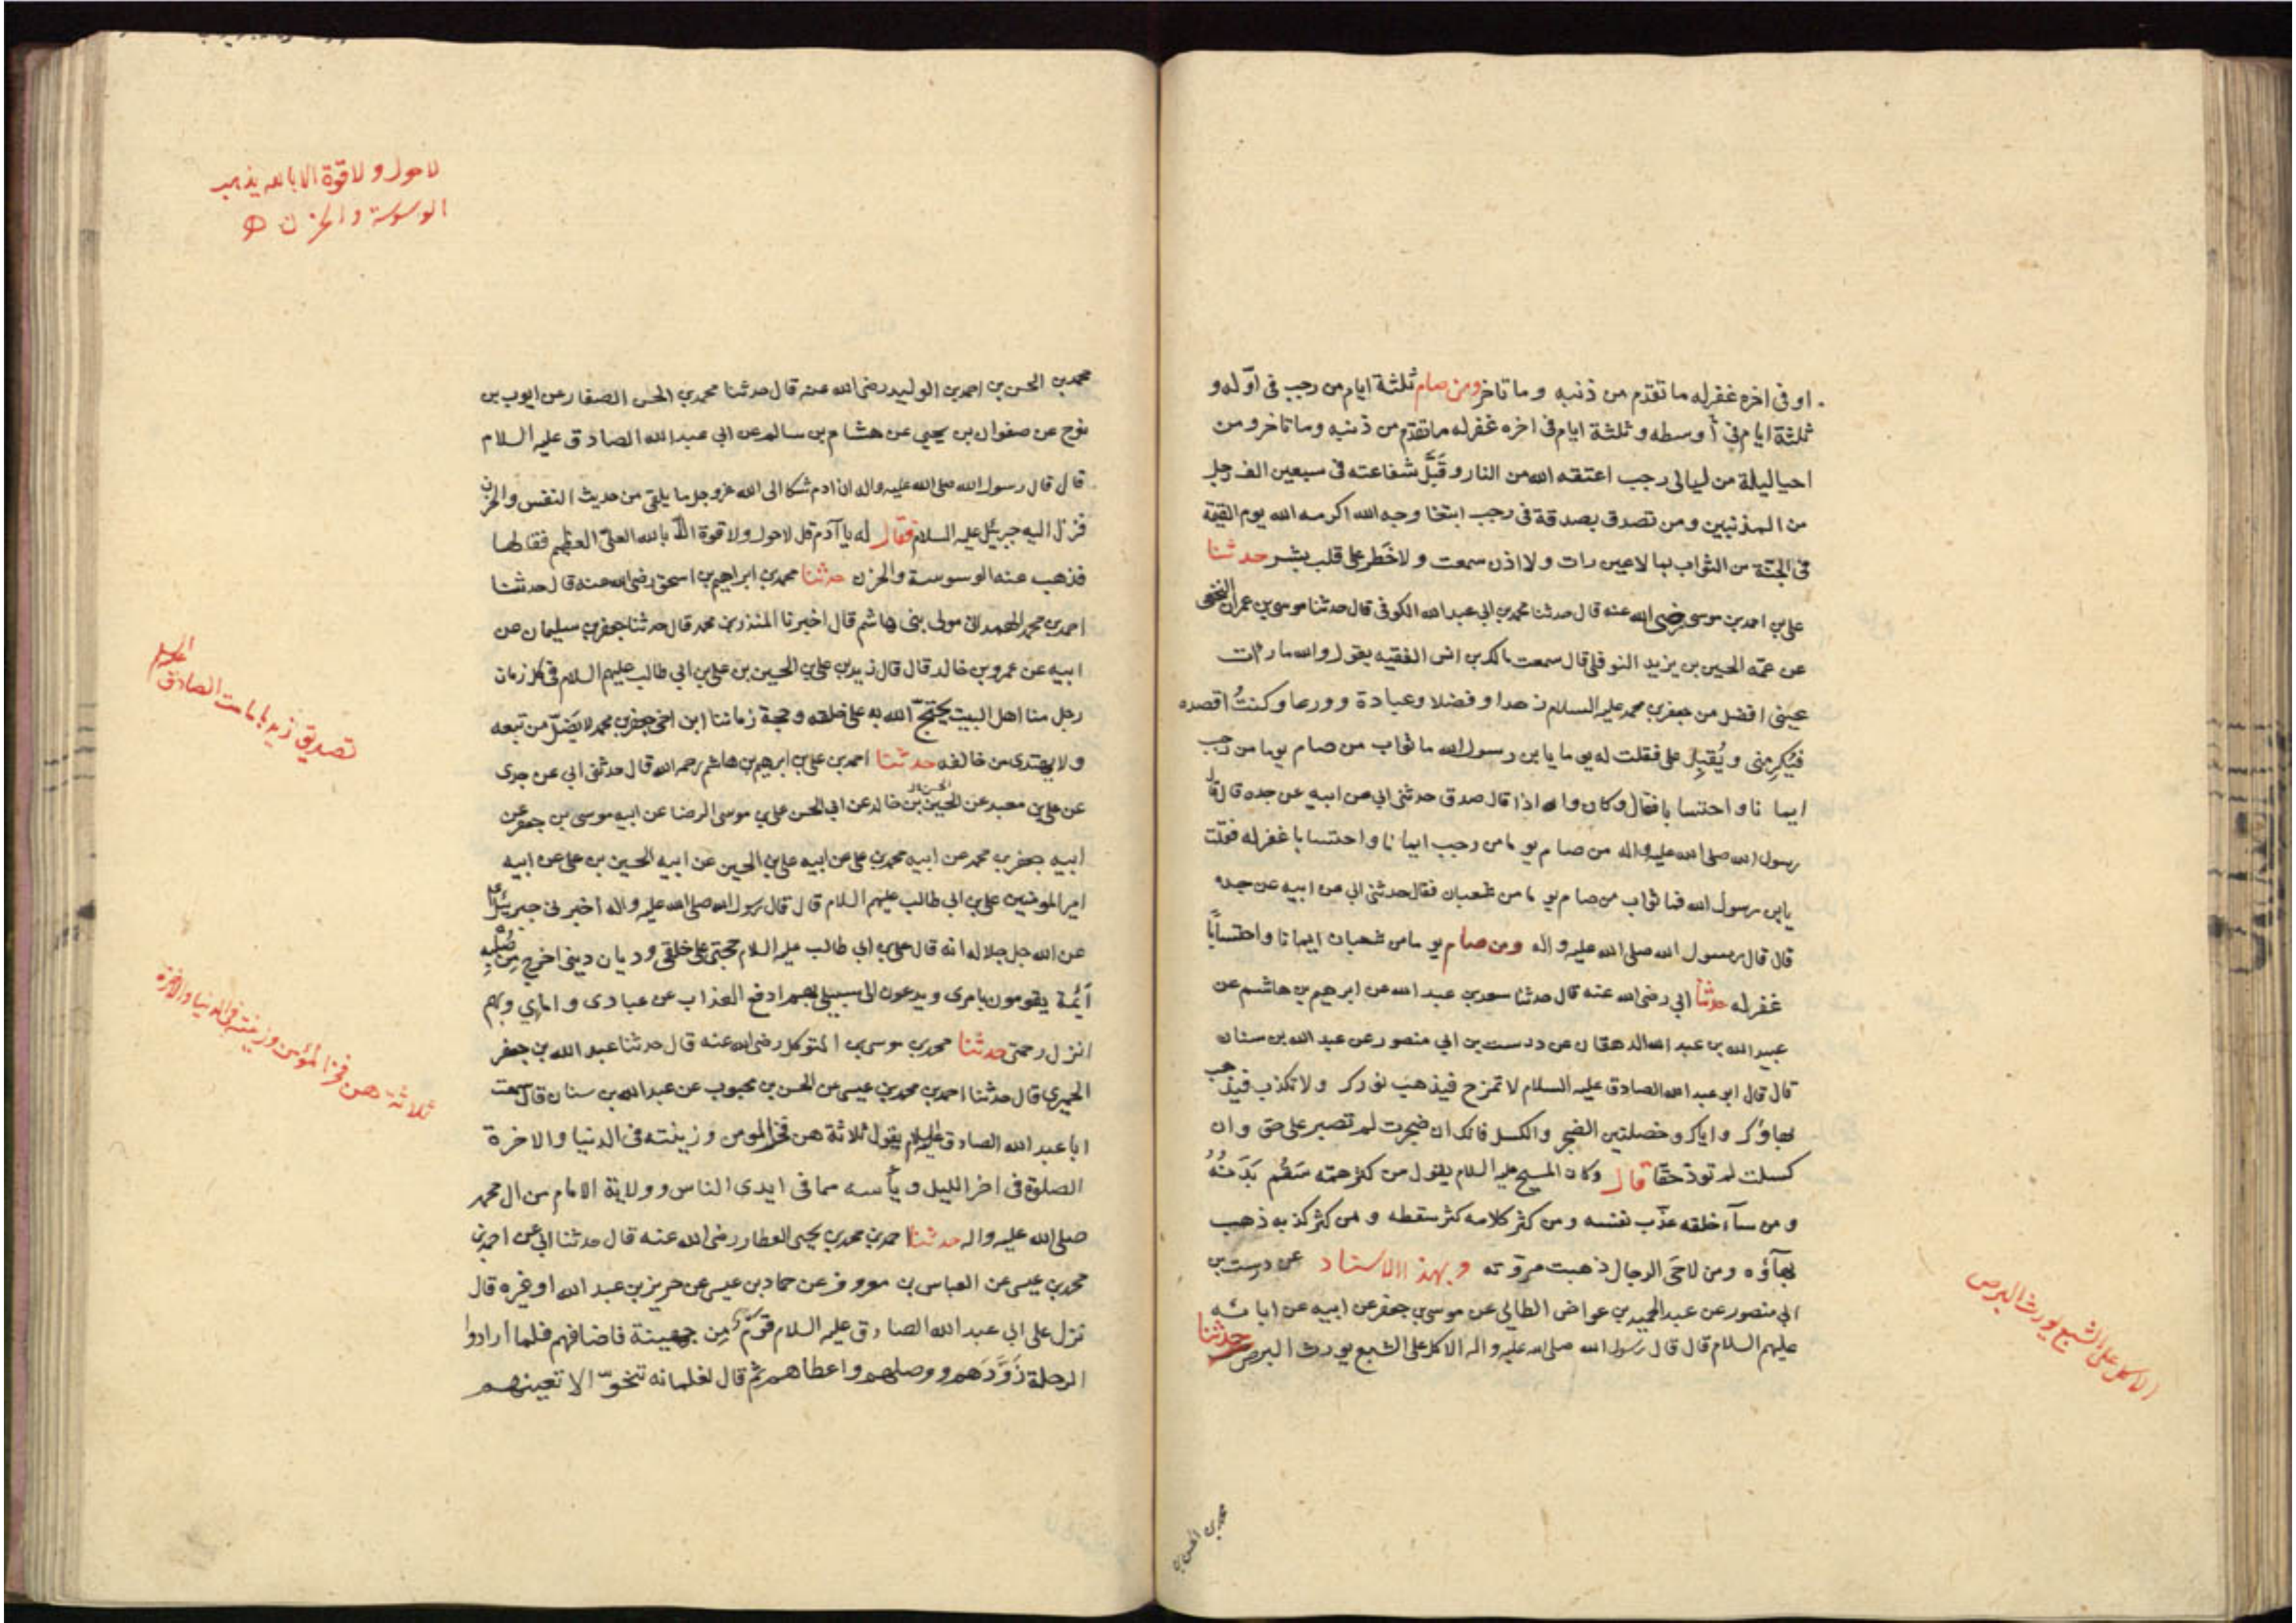 او فى اخره غفر له ما تقدم من ذنبه وما تاخر ومن صام ثلثة ايام من رجب فى اوّله و
ثلثة ايام فى أوسطه وثلثة ايام فى اخره غفر له ما تقدم من ذنبه وما تاخر ومن
احيا ليلة من ليالى رجب اعتقه الله من النار وقَبَّل شفاعته فى سبعين الف رجل
من المذنبين ومن تصدق بصدقة فى رجب ابتغا وجه الله اكرمه الله يوم القيمة
فى الجنّة من الثواب بما لا عين رات ولا اذن سمعت ولا خَطر على قلب بشر حدثنا
على بن احمد بن موسى رضى الله عنه قال حدثنا محمد بن ابى عبد الله الكوفى قال حدثنا موسى بن عمران النخعى
عن عمّه الحسين بن يزيد النوفلى قال سمعت مالك بن انس الفقيه يقول والله ما رات
عينى افضل من جعفر بن محمد عليه السلام زهدا وفضلا وعبادة وورعا وكنتُ اقصده
فيُكرمنى ويُقبِل على فقلت له يوما يابن رسول الله ما ثواب من صام يوما من رجب
ايمانا واحتسابا فقال وكان والله اذا قال صدق حدثنى ابى عن ابيه عن جده قال قال
رسول الله صلى الله عليه واله من صام يوما من رجب ايمانا واحتسابا غفر له فقلت
يابن رسول الله فما ثواب من صام يوما من شعبان فقال حدثنى ابى عن ابيه عن جده
قال قال رسول الله صلى الله عليه واله ومن صام يوما من شعبان ايمانا واحتسابًا
غفر له حدثنا ابى رضى الله عنه قال حدثنا سعد بن عبد الله عن ابرهيم بن هاشم عن
عبيد الله بن عبد الله الدهقان عن درست بن ابي منصور عن عبد الله بن سنان
قال قال ابو عبد الله الصادق عليه السلام لا تمزح فيذهب نورك ولا تكذب فيذهب
بهاؤك واياك وخصلتين الضجر والكسل فانك ان ضجرت لم تصبر على حق وان
كسلت لم تود حقا قال وكان المسيح عليه السلام يقول من كثر همّه سَقُم بَدَنُهُ
ومن ساء خلقه عذّب نفسه ومن كثر كلامه كثر سقطه ومن كثر كذبه ذهب
بهآؤه ومن لاحَى الرجال ذهبت مروّته وبهذا الاسناد عن درست بن
ابى منصور عن عبد الحميد بن عواض الطائى عن موسى بن جعفر عن ابيه عن ابائه
عليهم السلام قال قال رسول الله صلى الله عليه واله الاكل على الشبع يورث البرص حدثنا
الاكل على الشبع يورث البرص
محمد بن الحسن بن
محمد بن الحسن بن احمد بن الوليد رضى الله عنه قال حدثنا محمد بن الحسن الصفار عن ايوب بن
نوح عن صفوان بن يحيى عن هشام بن سالم عن ابي عبد الله الصادق عليه السلام
قال قال رسول الله صلى الله عليه واله ان ادم شكا الى الله عز وجل ما يلقى من حديث النفس والحزن
فنزل اليه جبرئيل عليه السلام فقال له يا آدم قل لا حول ولا قوة الا بالله العلىّ العظيم فقالها
فذهب عنه الوسوسة والحزن حدثنا محمد بن ابراهيم بن اسحق رضى الله عنه قال حدثنا
احمد بن محمد الهمدانى مولى بنى هاشم قال اخبرنا المنذر بن محمد قال حدثنا جعفر بن سليمان عن
ابيه عن عمرو بن خالد قال قال زيد بن على بن الحسين بن على بن ابى طالب عليهم السلام فى كل زمان
رجل منا اهل البيت يحتجّ الله به على خلقه وحجة زماننا ابن اخى جعفر بن محمد لا يَضلّ من تبعه
ولا يهتدى من خالفه حدثنا احمد بن على بن ابرهيم بن هاشم رحمه الله قال حدثنى ابى عن جدى
عن على بن معبد عن الحسين بن خالد عن ابى الحسن على بن موسى الرضا عن ابيه موسى بن جعفر عن
ابيه جعفر بن محمد عن ابيه محمد بن على عن ابيه على بن الحسين عن ابيه الحسين بن على عن ابيه
امير المومنين على بن ابى طالب عليهم السلام قال قال رسول الله صلى الله عليه واله أخبرنى جبرئيل
عن الله جل جلاله انه قال على بن ابى طالب عليه السلام حجّتى على خلقى وديان دينى اخرج مِن صُلبِهِ
أئمّة يقومون بامرى ويدعون الى سبيلى بهم ادفع العذاب عن عبادى وامائى وبهم
انزل رحمتى حدثنا محمد بن موسى بن المتوكل رضى الله عنه قال حدثنا عبد الله بن جعفر
الحميرى قال حدثنا احمد بن محمد بن عيسى عن الحسن بن محبوب عن عبد الله بن سنان قال سمعت
ابا عبد الله الصادق عليه السلام يقول ثلاثة هن فخر المومن وزينته فى الدنيا والاخرة
الصلوة فى اخر الليل ويأسه مما فى ايدى الناس وولاية الامام من ال محمد
صلى الله عليه واله حدثنا احمد بن محمد بن يحيى العطار رضى الله عنه قال حدثنا ابى عن احمد بن
محمد بن عيسى عن العباس بن معروف عن حماد بن عيسى عن حريز بن عبد الله او غيره قال
نزل على ابى عبد الله الصادق عليه السلام قومٌ مِن جهينة فاضافهم فلما أرادوا
الرحلة زَوَّدَهم ووصلهم واعطاهم ثم قال لغلمانه تنحّوا لا تعينوهم
لا حول ولا قوة الا بالله يذهب
الوسوسة والحزن
تصديق زيد بامامت الصادق عليه السلام
ثلاثة هن فخر المؤمن وزينته فى الدنيا والاخرة